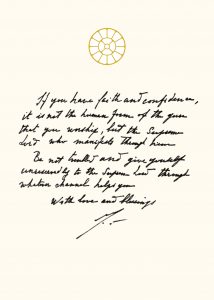 If you have faith and confidence,
it is not the human form of the guru
that you worship, but the Supreme
Lord who manifests through him.
Be not troubled and give yourself
unreservedly to the Supreme Lord through
whatever channel helps you
With love and blessings